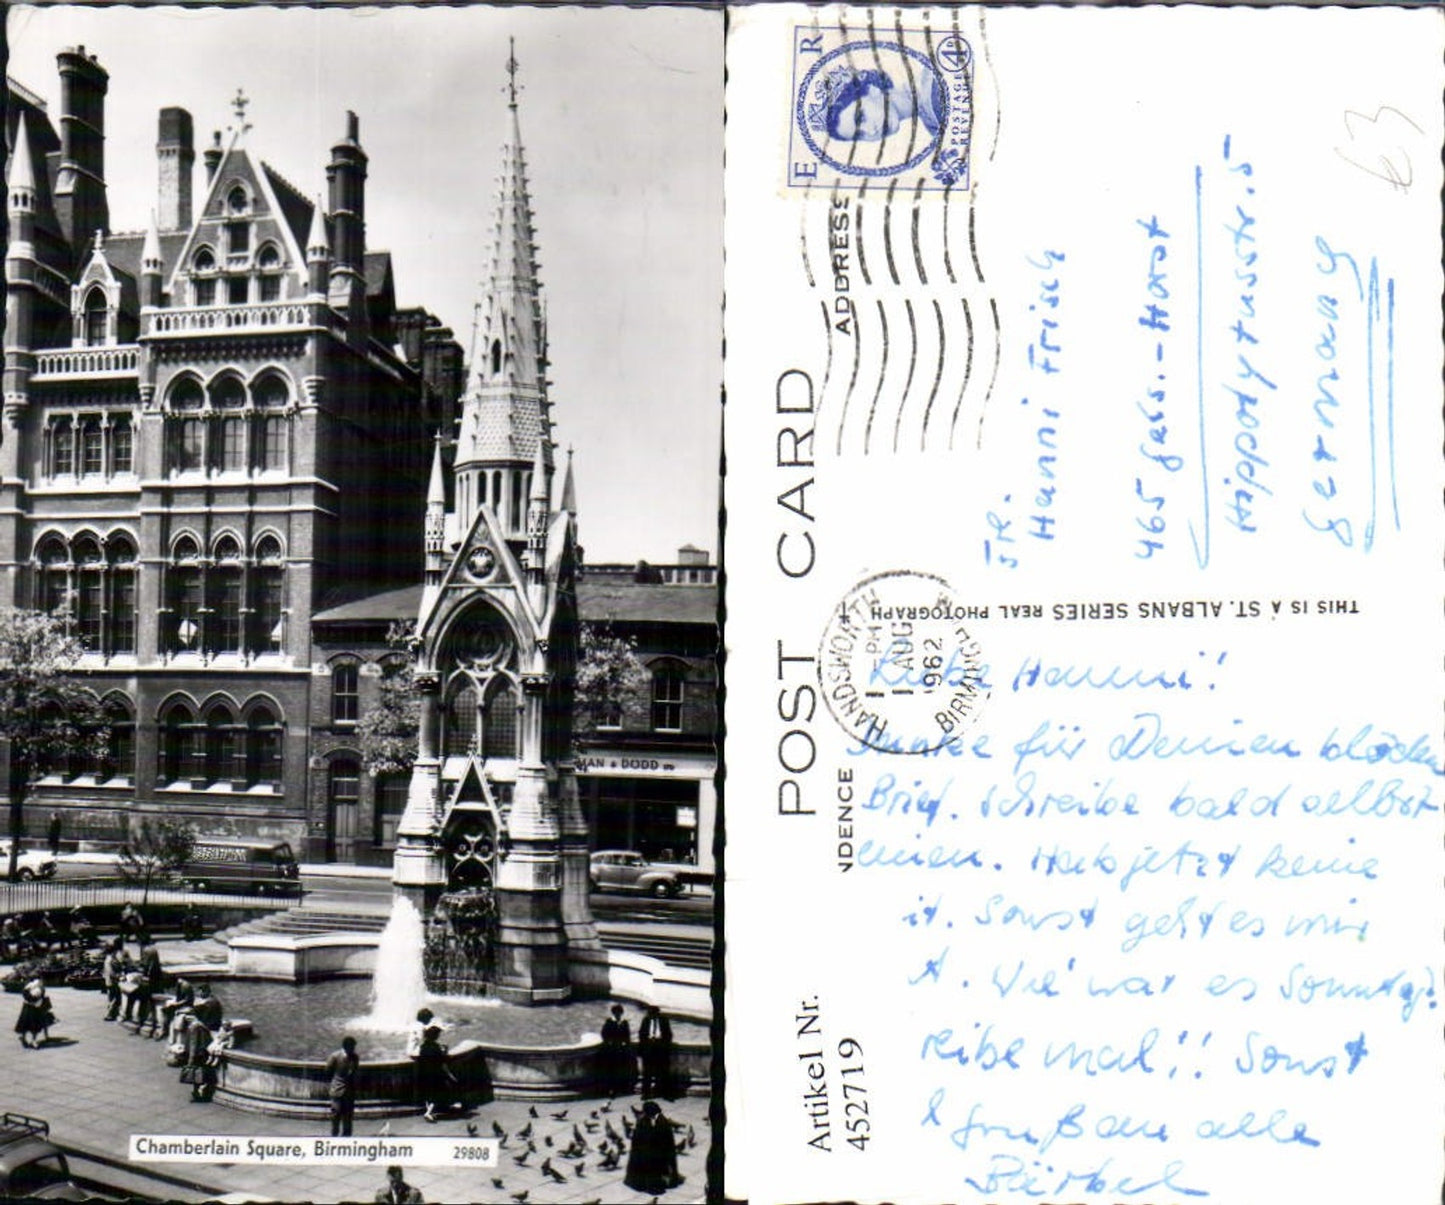 Chamberlain Square, Birmingham 29808
MAN & DODD LTD
POST CARD
ADDRESS
NDENCE
THIS IS A ST. ALBANS SERIES REAL PHOTOGRAPH
E R
4D
POSTAGE
REVENUE
HANDSWORTH
1 PM
1 AUG
1962
BIRMINGHAM
€3
Frl.
Hanni Frisch
465 Gels.-Horst
Hippolytusstr. 5
Germany
Liebe Hanni!
Danke für Deinen blöden
Brief. Schreibe bald selbst
einen. Hab jetzt keine
it. Sonst geht es mir
t. Wie war es Sonntag?
reibe mal!! Sonst
Grüß an alle
Bärbel
Artikel Nr.
452719